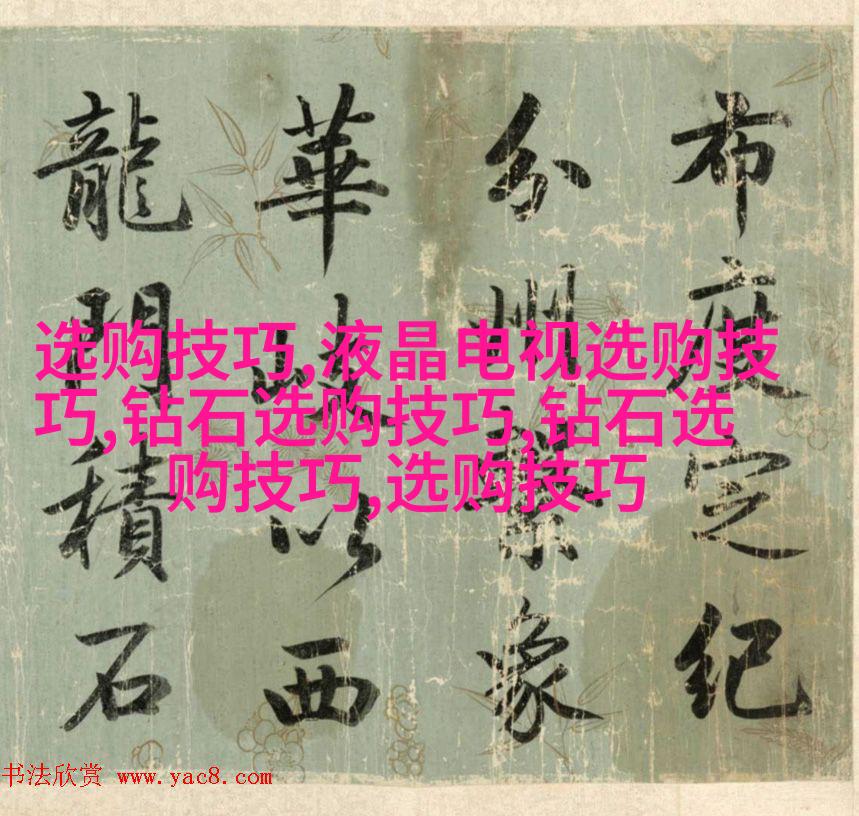 布度定紀
分州繫象
華岐以西
龍門積石
选购技巧,液晶电视选购技
巧,钻石选购技巧,钻石选
购技巧,选购技巧
书法欣赏 www.yac8.com